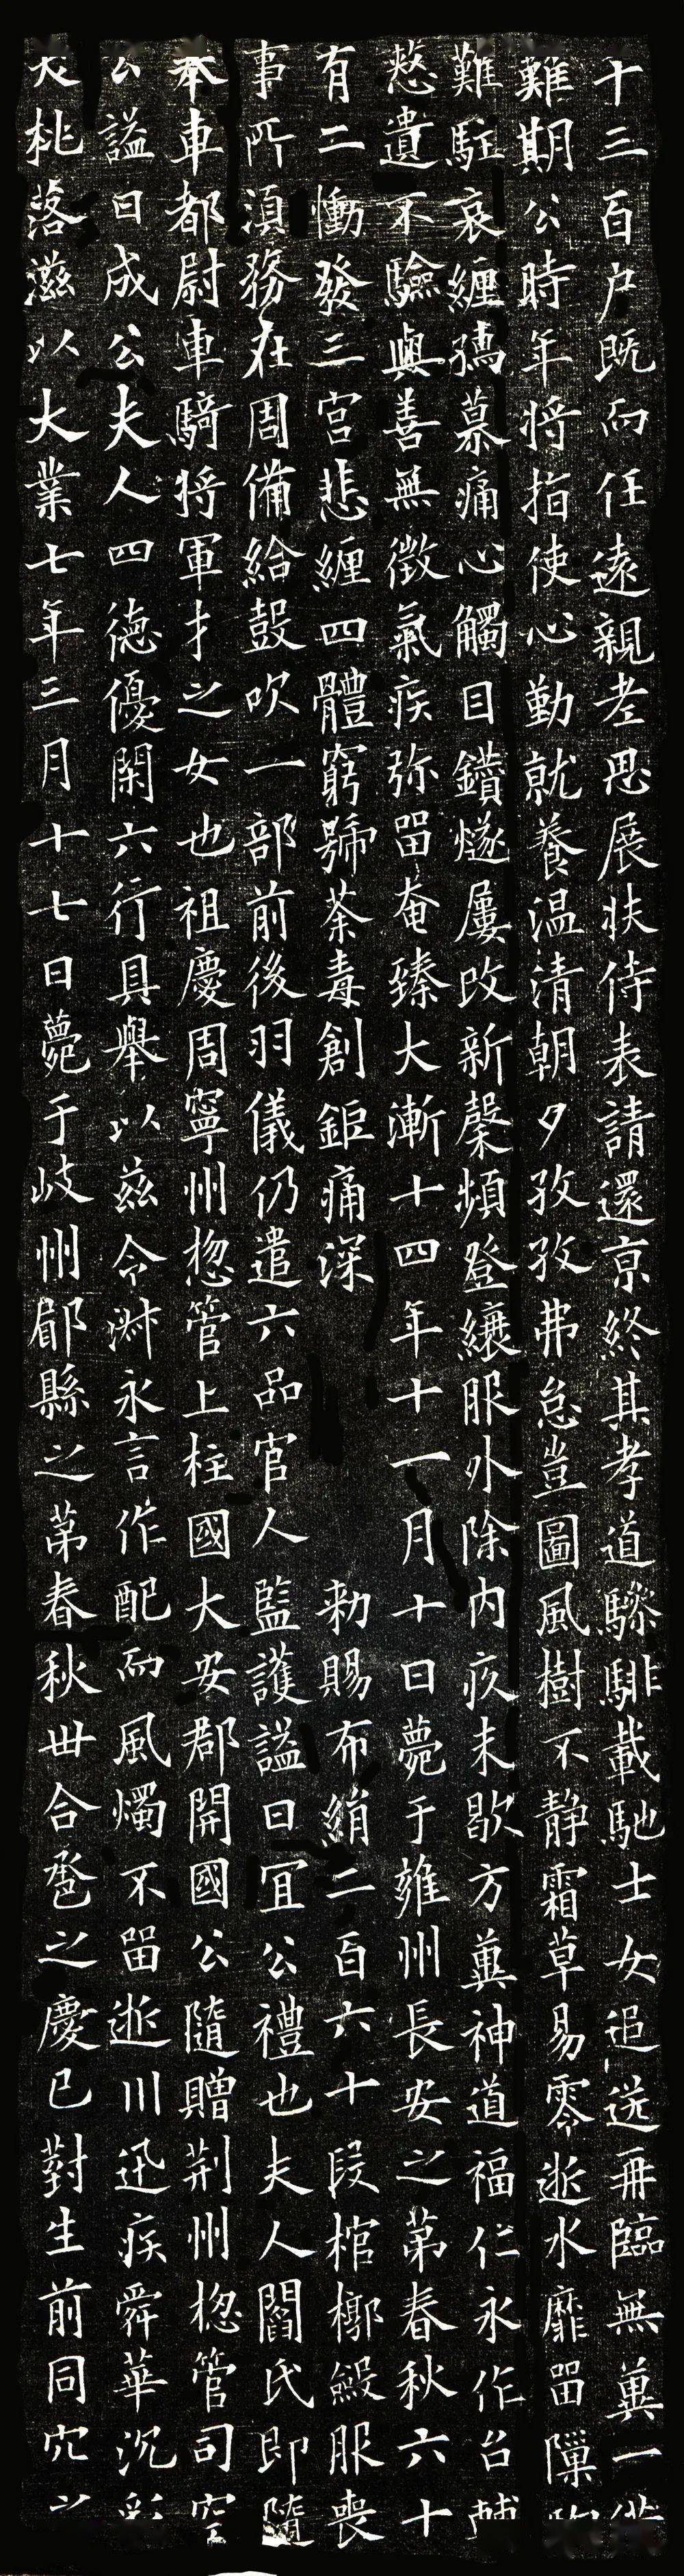 十三百户既而任遠親老思展扶侍表請還京終其孝道驂騑載馳士女追送再臨無冀一借
難期公時年将指使心勤就養温清朝夕孜孜弗怠豈圖風樹不静霜草易零逝水靡留隟駒
難駐哀纏孺慕痛心觸目鑽燧屢改新榖頻登縗服外除内疚未歇方冀神道福仁永作台輔
慭遺不驗與善無徴氣疾弥留奄臻大漸十四年十一月十日薨于雍州長安之第春秋六十
有二慟發三宫悲纏四體窮號荼毒創鉅痛深 勑賜布絹二百六十段棺槨殮服喪
事所湏務在周備給鼓吹一部前後羽儀仍遣六品官人監護謚曰宜公禮也夫人閻氏即隨
奉車都尉車騎将軍才之女也祖慶周寧州揔管上柱國大安郡開國公隨贈荆州揔管司空
公謚曰成公夫人四德優閑六行具舉以兹令淋永言作配而風燭不留逝川迅疾舜華沉彩
夭桃落滋以大業七年三月十七日薨于岐州郿縣之第春秋卌合巹之慶已對生前同穴之